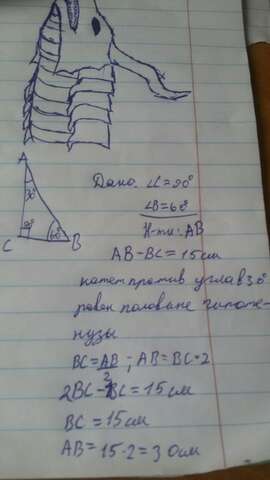 A
30°
90°
60°
C
B
Дано. ∠C=90°
∠B=60°
Н-ти: AB
AB-BC=15см
катет против угла в 30°
равен половине гипоте-
нузы
BC=AB/2; AB=BC·2
2BC-BC=15см
BC=15см
AB=15·2=30см